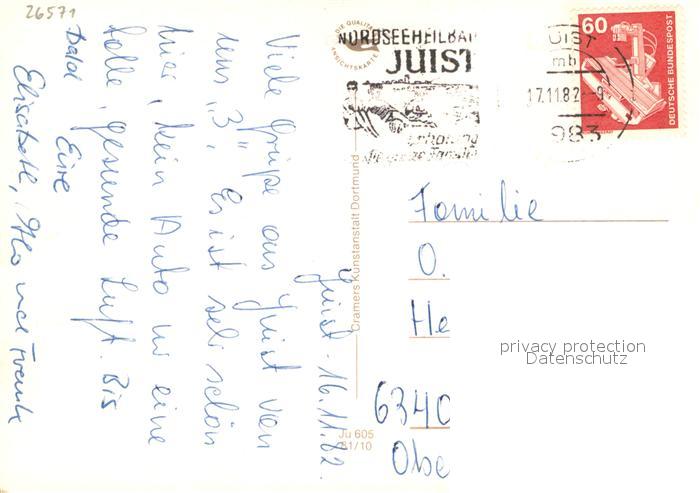 26571
DIE QUALITÄTS
ANSICHTSKARTE
NORDSEEHEILBAD
JUIST
Erholung
die ganze Familie
17.11.82-9
983
60
DEUTSCHE BUNDESPOST
Juist. 16.11.82.
Viele Grüße aus Juist von
uns „3". Es ist sehr schön
hier, kein Auto u. eine
tolle, gesunde Luft. Bis
bald Eure
Elisabeth, und Frank
Cramers Kunstanstalt Dortmund
Ju 605
81/10
Familie
O.
He
6340
privacy protection
Datenschutz